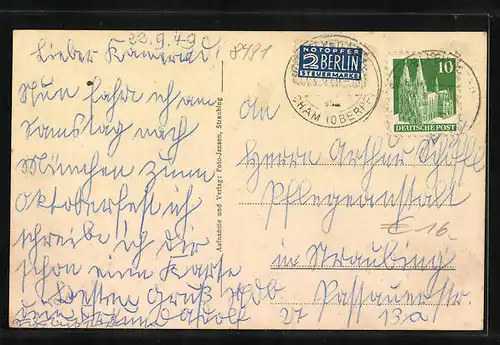 22.9.49
Lieber Kamerad!
Nun fahr ich am
Samstag nach
München zum
Oktoberfest ich
schreibe ich dir
schon eine Karte
Besten Gruß
dein Adolf
8481
Aufnahme und Verlag: Foto-Jansen, Straubing
NOTOPFER
2 BERLIN
STEUERMARKE
CHAM (OBERPF
10
DEUTSCHE POST
An
Herrn Arthur
Pflegeanstalt
€ 16
in Straubing
Passauer Str.
27 13a